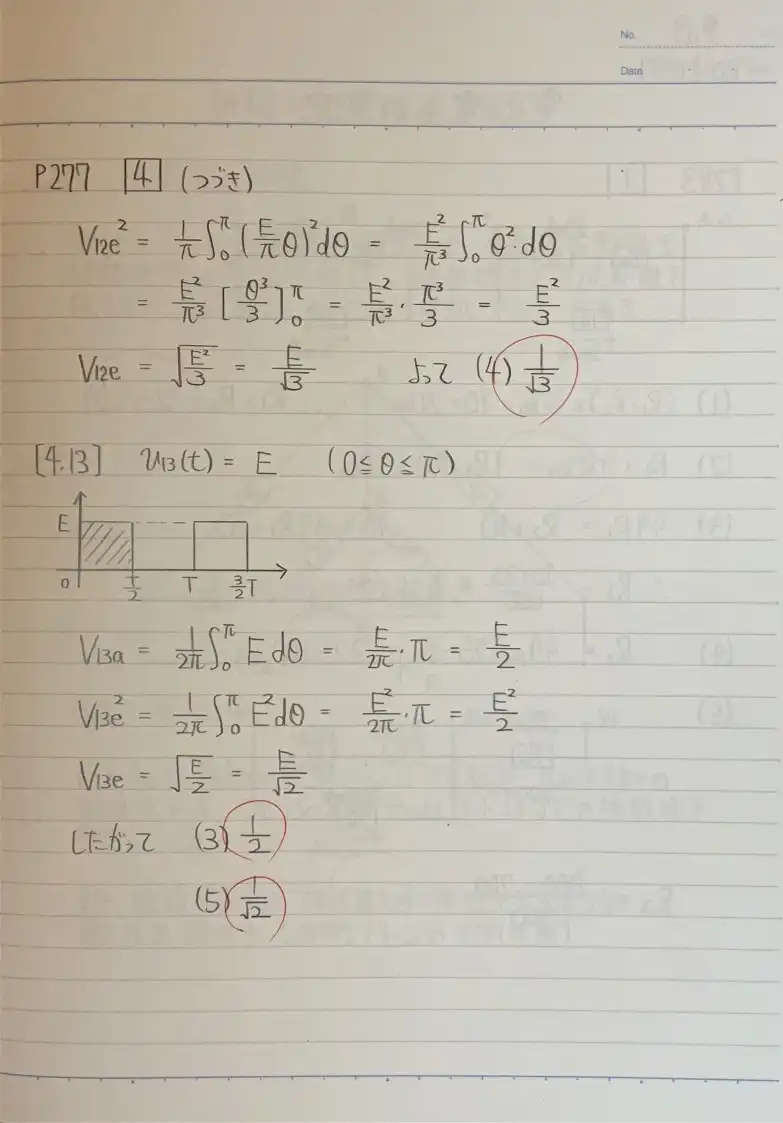 No.
Date
P277 [4] (つづき)
V12e² = 1/π ∫₀^π (E/π θ)² dθ = E²/π³ ∫₀^π θ²・dθ
= E²/π³ [θ³/3]₀^π = E²/π³ ・ π³/3 = E²/3
V12e = √(E²/3) = E/√3 よって (4) 1/√3
[4.13] v13(t) = E (0 ≦ θ ≦ π)
E
0 T/2 T 3/2 T
V13a = 1/2π ∫₀^π E dθ = E/2π ・ π = E/2
V13e² = 1/2π ∫₀^π E² dθ = E²/2π ・ π = E²/2
V13e = √(E/2) = E/√2
したがって (3) 1/2
(5) 1/√2